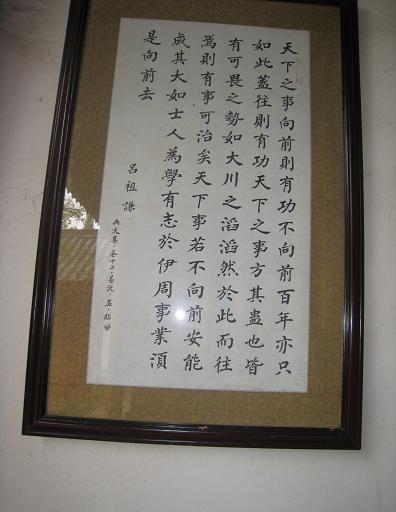 天下之事向前則有功不向前百年亦只
如此蓋往則有功天下之事方其蠱也皆
有可畏之勢如大川之滔滔然於此而往
焉則有事可治矣天下事若不向前安能
成其大如士人為學有志於伊周事業須
是向前去
呂祖謙
文集·卷十三·易說·蠱·臨